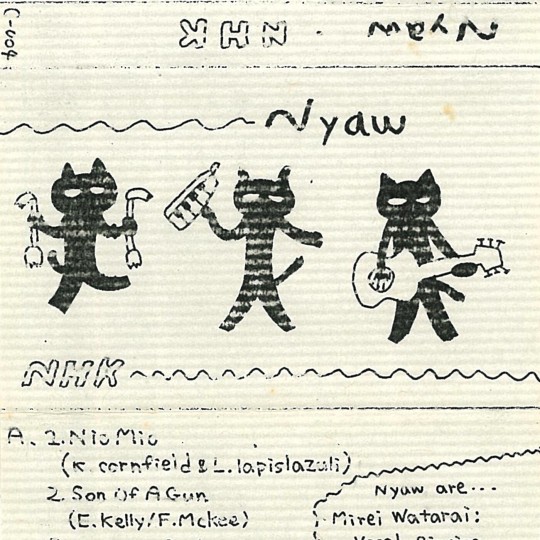 C-004
NHK · Nyaw
Nyaw
NHK
A. 1. Nio Mio
(K. cornfield & L. lapislazuli)
2. Son Of A Gun
(E. Kelly/F. Mckee)
Nyaw are...
Mirei Watarai: